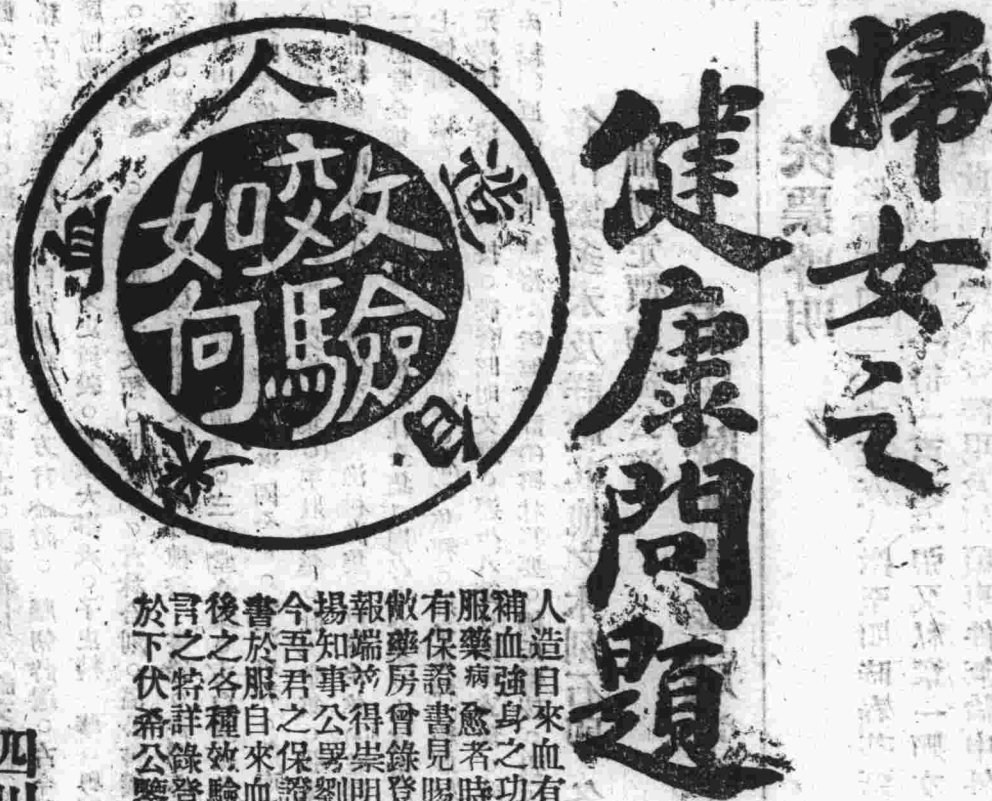 婦女之
健康問題
人造自來血
效驗
如何
人造自來血有
補血強身之功
服藥病愈者時
有保證書見賜
敝藥房曾錄登
報端茲得崇明
場知事公署劉
今吾君之保證
書於服自來血
後之各種效驗
言之特詳錄登
於下伏希公鑒
四